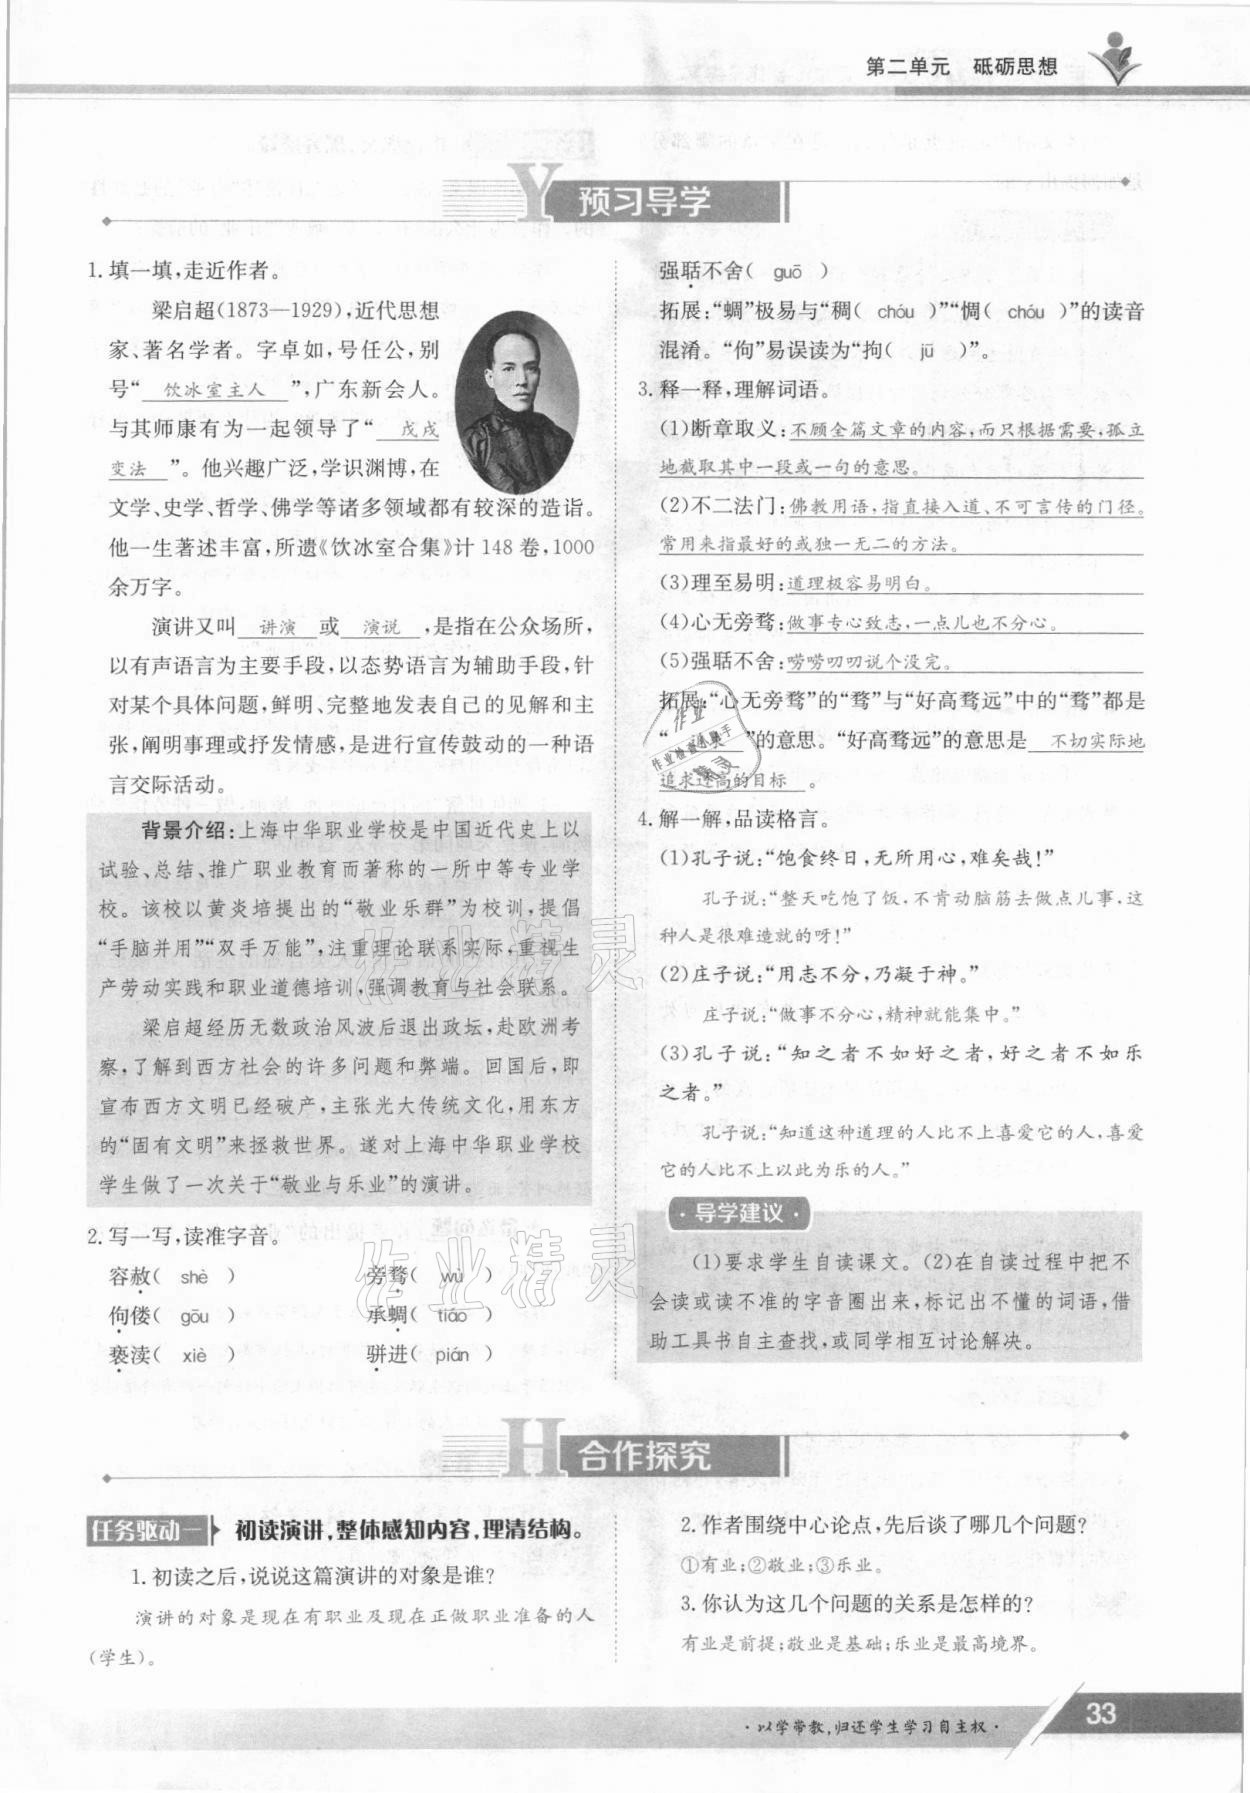 第二单元 砥砺思想
Y 预习导学
1. 填一填,走近作者。
梁启超(1873—1929),近代思想
家、著名学者。字卓如,号任公,别
号“ 饮冰室主人 ”,广东新会人。
与其师康有为一起领导了“ 戊戌
变法 ”。他兴趣广泛,学识渊博,在
文学、史学、哲学、佛学等诸多领域都有较深的造诣。
他一生著述丰富,所遗《饮冰室合集》计 148 卷,1000
余万字。
演讲又叫 讲演 或 演说 ,是指在公众场所,
以有声语言为主要手段,以态势语言为辅助手段,针
对某个具体问题,鲜明、完整地发表自己的见解和主
张,阐明事理或抒发情感,是进行宣传鼓动的一种语
言交际活动。
背景介绍:上海中华职业学校是中国近代史上以
试验、总结、推广职业教育而著称的一所中等专业学
校。该校以黄炎培提出的“敬业乐群”为校训,提倡
“手脑并用”“双手万能”,注重理论联系实际,重视生
产劳动实践和职业道德培训,强调教育与社会联系。
梁启超经历无数政治风波后退出政坛,赴欧洲考
察,了解到西方社会的许多问题和弊端。回国后,即
宣布西方文明已经破产,主张光大传统文化,用东方
的“固有文明”来拯救世界。遂对上海中华职业学校
学生做了一次关于“敬业与乐业”的演讲。
2. 写一写,读准字音。
容赦( shè ) 旁骛( wù )
佝偻( gōu ) 承蜩( tiáo )
亵渎( xiè ) 骈进( pián )
强聒不舍( guō )
拓展:“蜩”极易与“稠( chóu )”“惆( chóu )”的读音
混淆。“佝”易误读为“拘( jū )”。
3. 释一释,理解词语。
(1)断章取义:不顾全篇文章的内容,而只根据需要,孤立
地截取其中一段或一句的意思。
(2)不二法门:佛教用语,指直接入道、不可言传的门径。
常用来指最好的或独一无二的方法。
(3)理至易明:道理极容易明白。
(4)心无旁骛:做事专心致志,一点儿也不分心。
(5)强聒不舍:唠唠叨叨说个没完。
拓展:“心无旁骛”的“骛”与“好高骛远”中的“骛”都是
“ ”的意思。“好高骛远”的意思是 不切实际地
追求过高的目标 。
4. 解一解,品读格言。
(1)孔子说:“饱食终日,无所用心,难矣哉!”
孔子说:“整天吃饱了饭,不肯动脑筋去做点儿事,这
种人是很难造就的呀!”
(2)庄子说:“用志不分,乃凝于神。”
庄子说:“做事不分心,精神就能集中。”
(3)孔子说:“知之者不如好之者,好之者不如乐
之者。”
孔子说:“知道这种道理的人比不上喜爱它的人,喜爱
它的人比不上以此为乐的人。”
· 导学建议 ·
(1)要求学生自读课文。(2)在自读过程中把不
会读或读不准的字音圈出来,标记出不懂的词语,借
助工具书自主查找,或同学相互讨论解决。
作业精灵
作业精灵
H 合作探究
任务驱动一 初读演讲,整体感知内容,理清结构。
1. 初读之后,说说这篇演讲的对象是谁?
演讲的对象是现在有职业及现在正做职业准备的人
(学生)。
2. 作者围绕中心论点,先后谈了哪几个问题?
①有业;②敬业;③乐业。
3. 你认为这几个问题的关系是怎样的?
有业是前提;敬业是基础;乐业是最高境界。
· 以学带教,归还学生学习自主权 ·
33